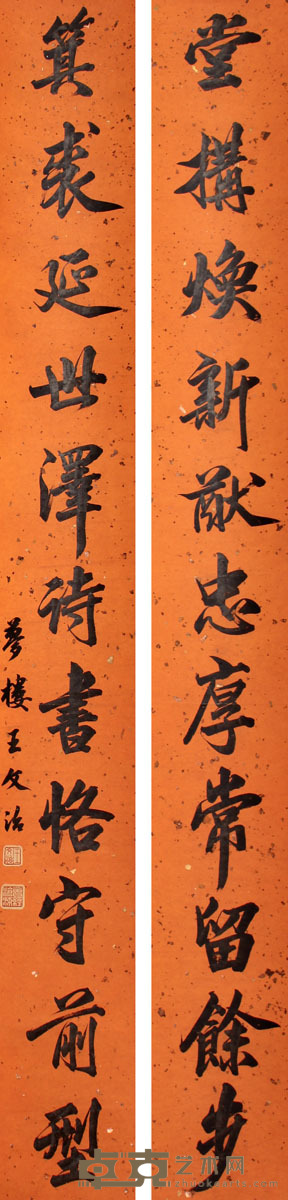 堂構煥新猷忠厚常留餘步
箕裘延世澤詩書恪守前型
夢樓王文治
卓克艺术网